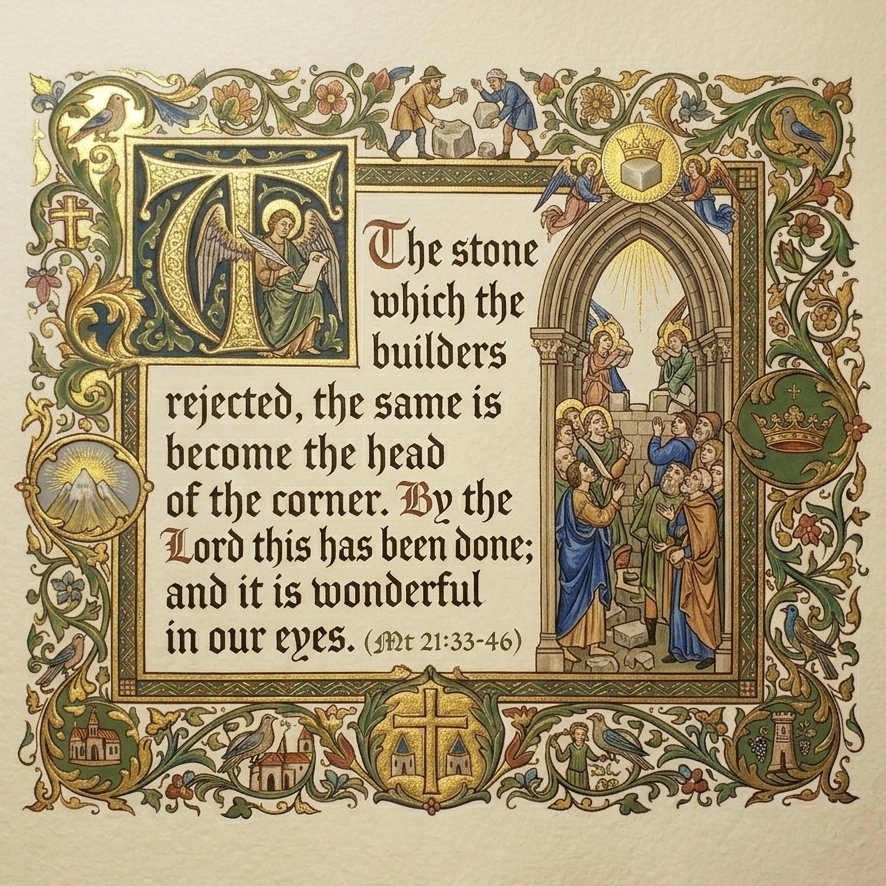 T
The stone
which the
builders
rejected, the same is
become the head
of the corner. By the
Lord this has been done;
and it is wonderful
in our eyes. (Mt 21:33-46)